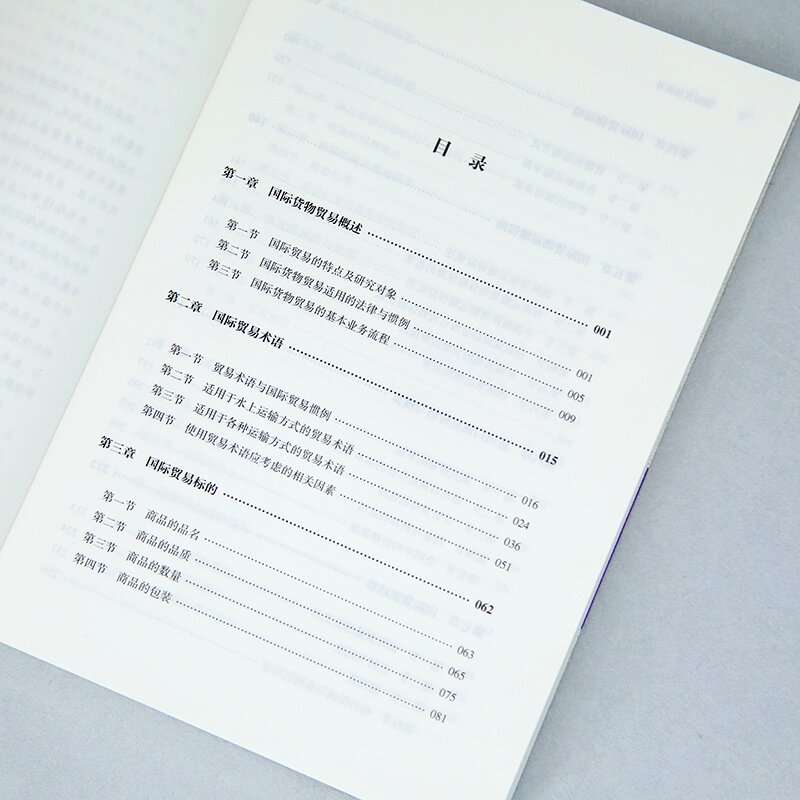 目 录
第一章 国际货物贸易概述 001
第一节 国际贸易的特点及研究对象 001
第二节 国际货物贸易适用的法律与惯例 005
第三节 国际货物贸易的基本业务流程 009
第二章 国际贸易术语 015
第一节 贸易术语与国际贸易惯例 016
第二节 适用于水上运输方式的贸易术语 024
第三节 适用于各种运输方式的贸易术语 036
第四节 使用贸易术语应考虑的相关因素 051
第三章 国际贸易标的 062
第一节 商品的品名 063
第二节 商品的品质 065
第三节 商品的数量 075
第四节 商品的包装 081